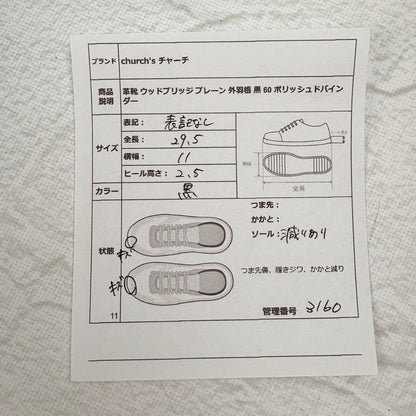 ブランド church's チャーチ
商品説明 革靴 ウッドブリッジ プレーン 外羽根 黒 60 ポリッシュドバインダー
サイズ
表記： 表記なし
全長： 29.5
横幅： 11
ヒール高さ： 2.5
ヒール高さ
横幅
全長
カラー 黒
状態
つま先：
かかと：
ソール： 減りあり
キズ
キズ
つま先傷、履きジワ、かかと減り
11
管理番号 3160